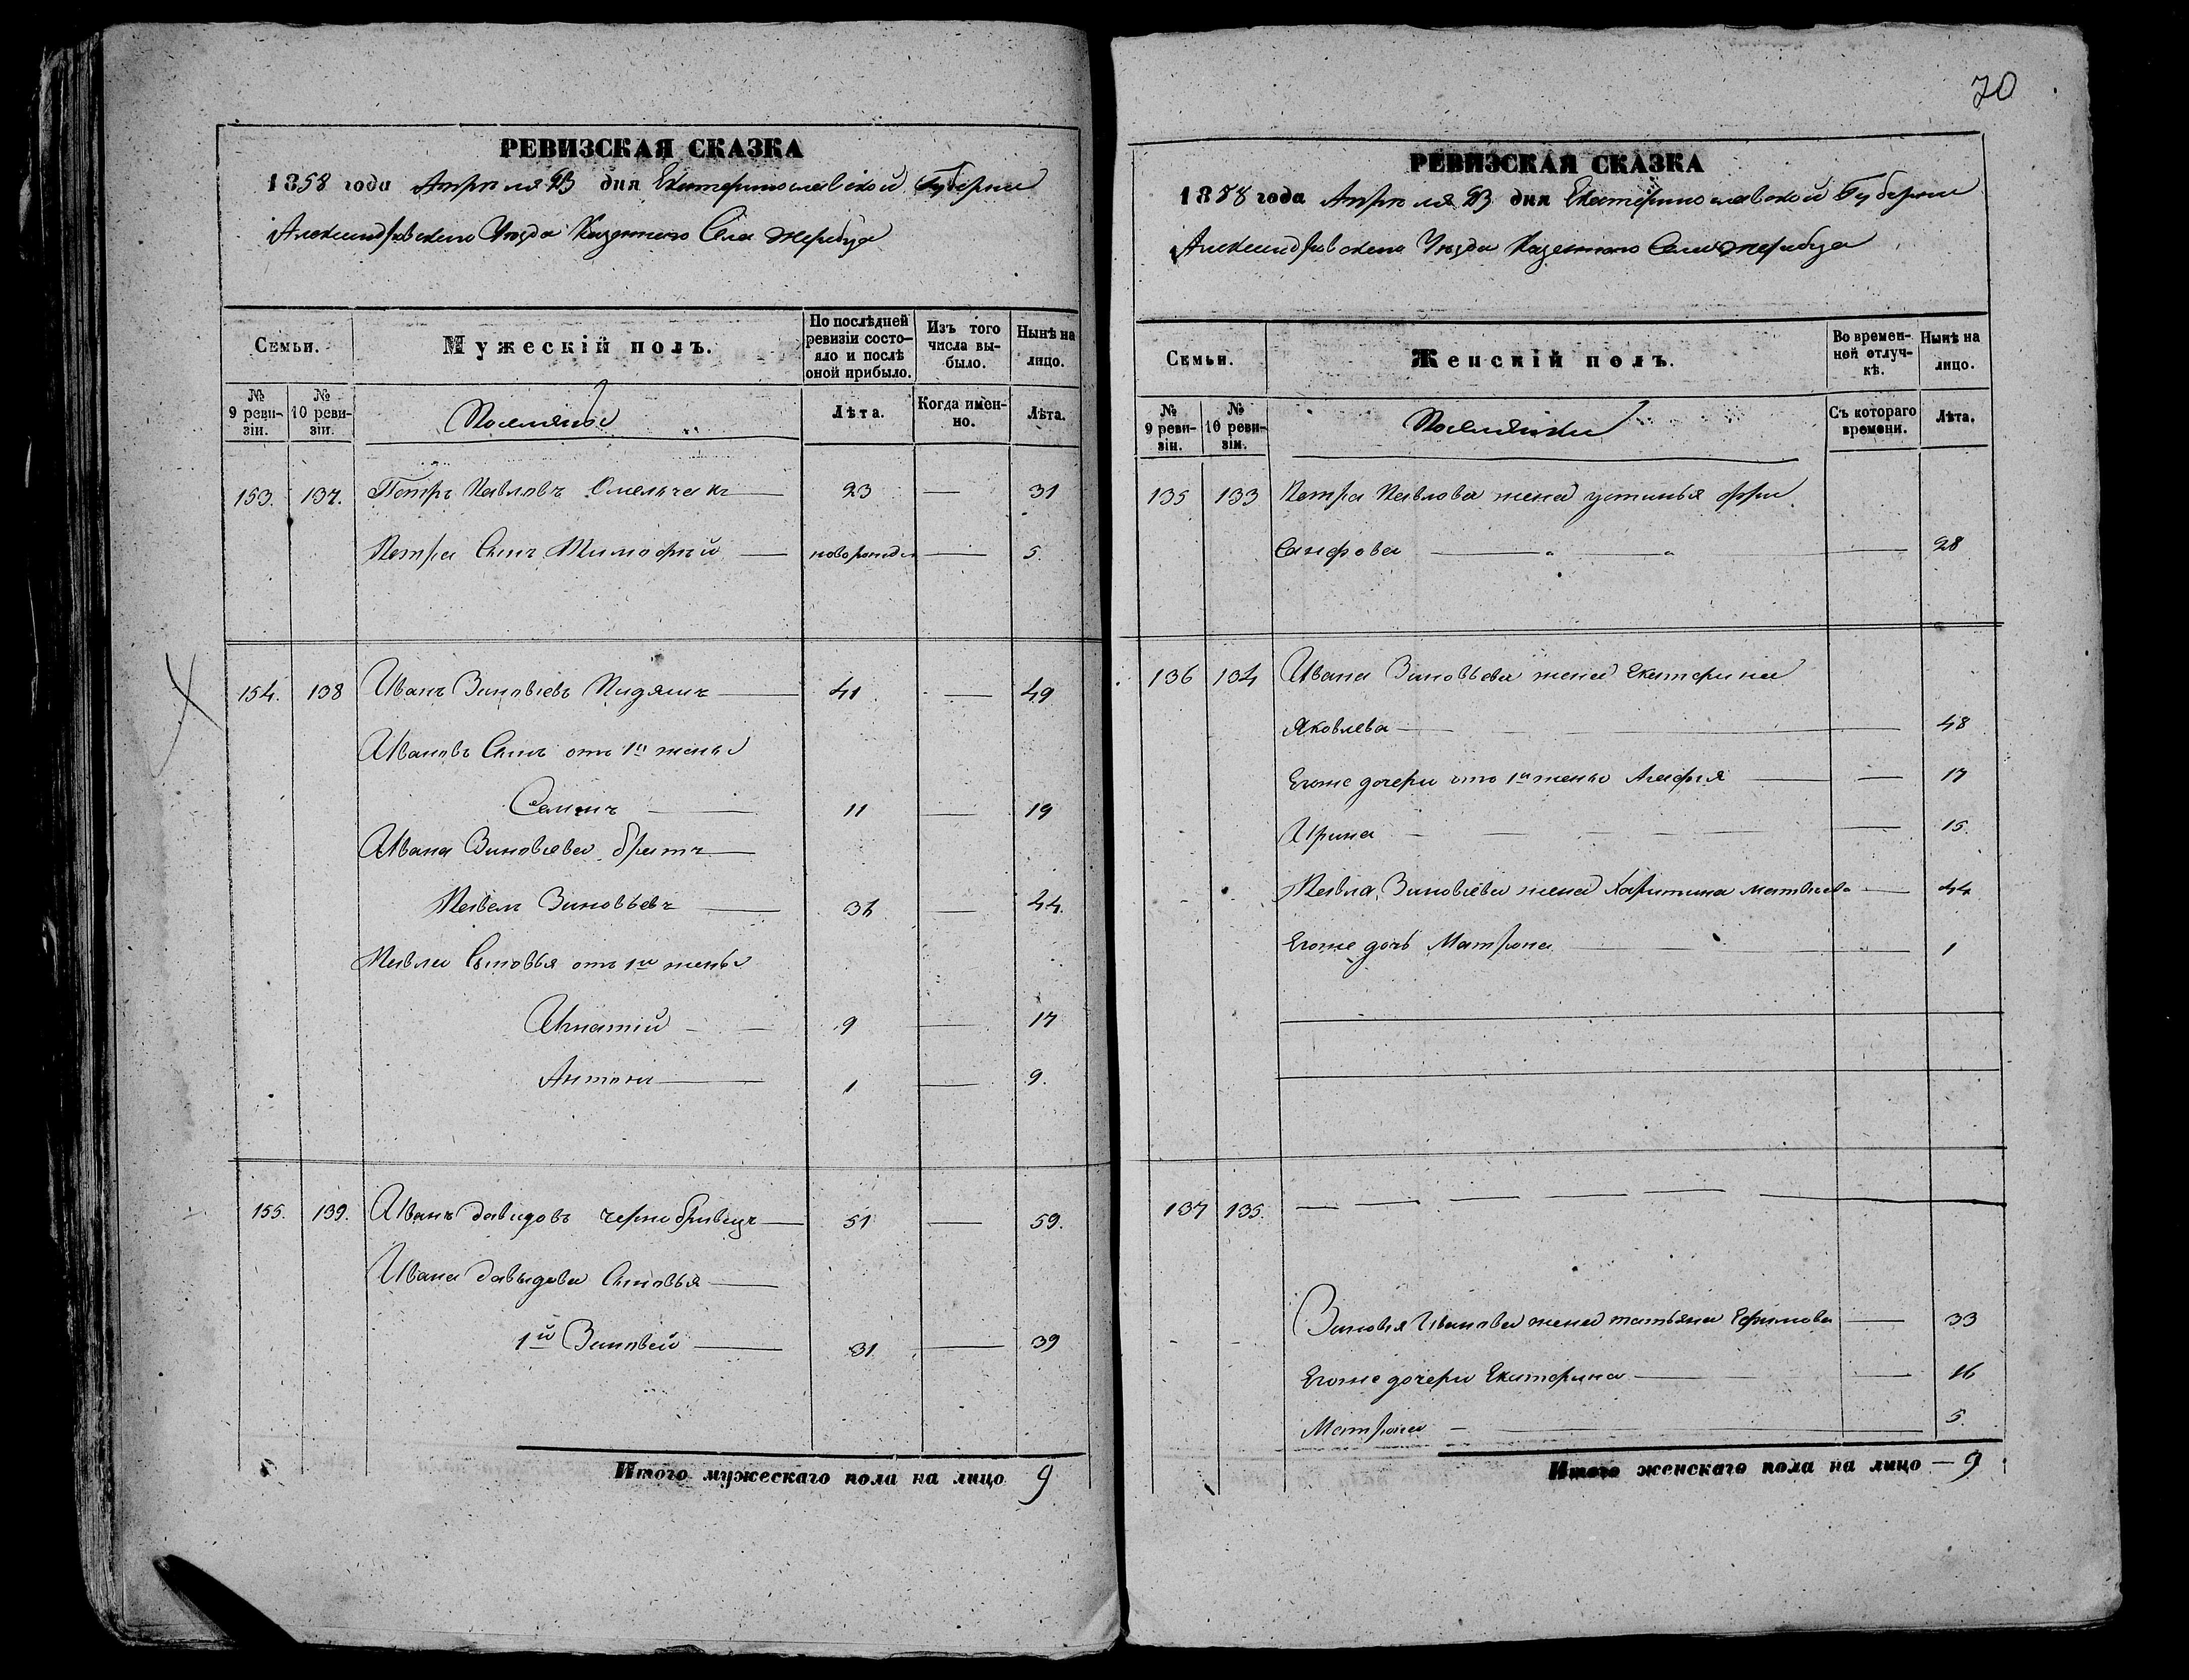 РЕВИЗСКАЯ СКАЗКА
1858 года Апреля 23 дня Екатеринославской Губернии
Александровскаго Уезда Казеннаго Села Жеребца
Семьи.
Мужескій полъ.
По послѣдней ревизіи состо-
яло и послѣ
оной прибыло.
Изъ того
числа вы-
было.
Нынѣ на
лицо.
№
9 реви-
зіи.
№
10 реви-
зіи.
Поселяне
Лѣта.
Когда имен-
но.
Лѣта.
153. 137. Петръ Павловъ Омельчакъ — 23 — 31
Петра Сынъ Тимофей — новорожден — 5.
154. 138 Иванъ Зиновьевъ — 41 — 49
Ивановъ Сынъ отъ 1й жены
Семенъ — 11 — 19
Ивана Зиновьева братъ —
Павелъ Зиновьевъ — 36 — 44.
Павла Сыновья отъ 1й жены
Игнатій — 9 — 17
Антонъ — 1 — 9.
155. 139. Иванъ Давидовъ Чернобривецъ — 51 — 59.
Ивана Давыдова Сыновья —
1й Зиновей — 31 — 39
Итого мужескаго пола на лицо 9
70
РЕВИЗСКАЯ СКАЗКА
1858 года Апреля 23 дня Екатеринославской Губернии
Александровскаго Уезда Казеннаго Села Жеребца
Семьи.
Женскій полъ.
Во времен-
ной отлуч-
кѣ.
Нынѣ на
лицо.
№
9 реви-
зіи.
№
10 реви-
зіи.
Поселянки
Съ котораго
времени.
Лѣта.
135 133 Петра Павлова жена Устинья
— " — " — 28
136 134 Ивана Зиновьева жена Екатерина
Яковлева — 48
Егоже дочери отъ 1й жены Агафія — 17
Ирина — 15.
Павла Зиновьева жена Харитина Матвѣева — 44
Егоже дочь Матрона — 1
137 135. —
Зиновья Иванова жена татьяна Ефимова — 33
Егоже дочери Екатерина — 16
Матрона — 5.
Итого женскаго пола на лицо — 9